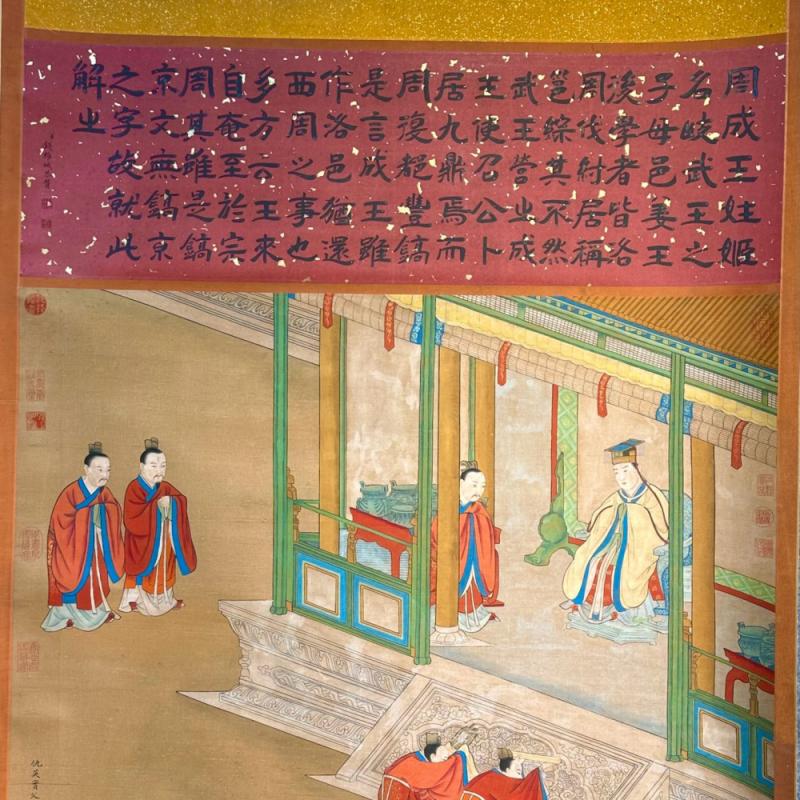 周成王姓姬
名晈武王之
子母邑姜王
後學者皆洛
周伐紂居稱
邕綜其不然
武王營之成
王使召公卜
居九鼎焉而
周復都豐鎬
是言成王雖
作洛邑猶還
西周之事也
多方云王來
自奄至於宗
周其雖是鎬
京文無鎬京
之字故就此
解之
仇英實父